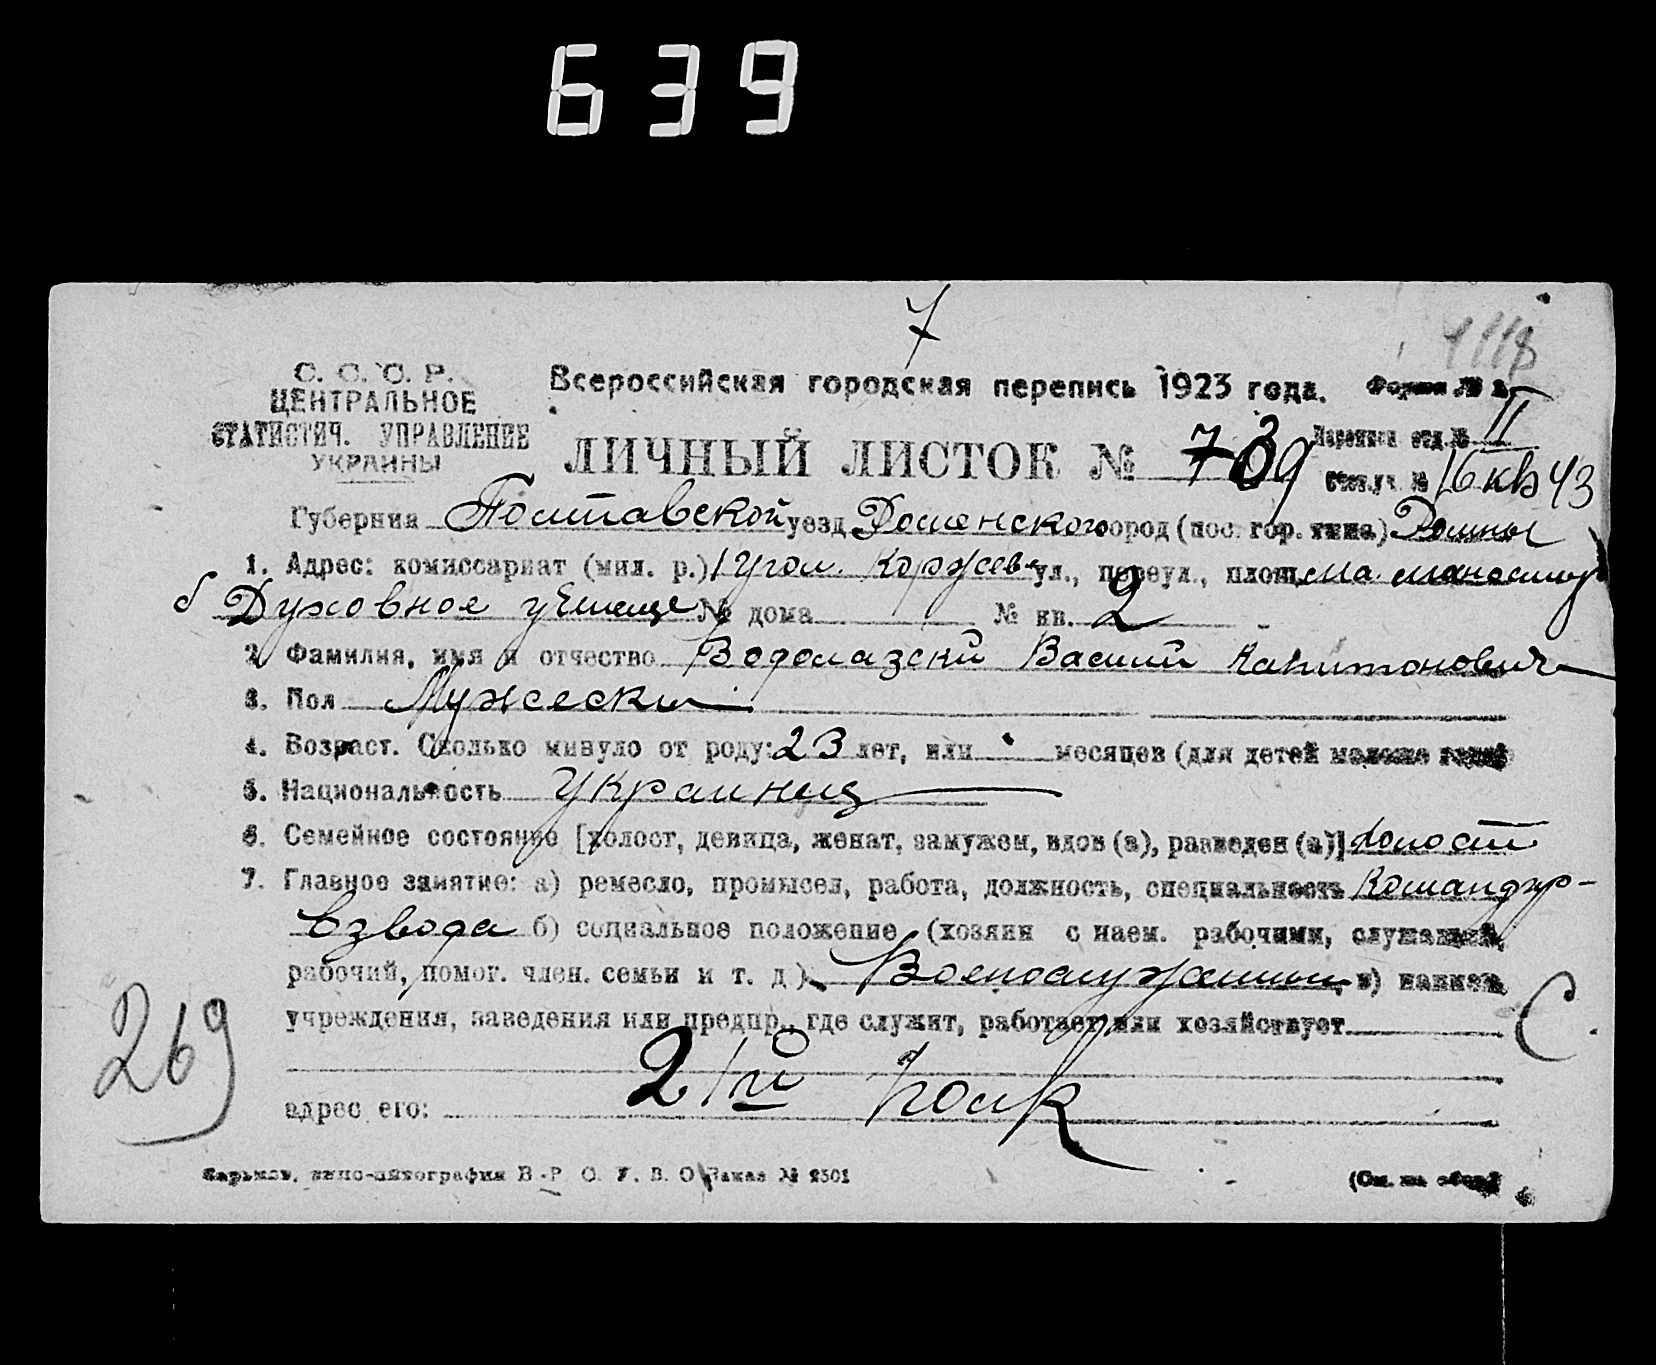 639
7
1118
С. С. С. Р.
ЦЕНТРАЛЬНОЕ
СТАТИСТИЧ. УПРАВЛЕНИЕ
УКРАИНЫ
Всероссийская городская перепись 1923 года. Форма №
ЛИЧНЫЙ ЛИСТОК № 739
Перепис. отд. № II
Счет. уч. № 16 кв 43
Губерния Полтавской уезд Роменского город (пос. гор. типа) Ромны
1. Адрес: комиссариат (мил. р.) Угол. Коржев ул., переул., площ.
б Духовное училище № дома № кв. 2
2. Фамилия, имя и отчество Водолазский Василий Капитонович
3. Пол Мужеский
4. Возраст. Сколько минуло от роду: 23 лет, или месяцев (для детей моложе
5. Национальность Украинец
6. Семейное состояние [холост, девица, женат, замужем, вдов (а), разведен (а)] холост
7. Главное занятие: а) ремесло, промысел, работа, должность, специальность Командир-
взвода б) социальное положение (хозяин с наем. рабочими, служащий,
рабочий, помог. член. семьи и т. д.) Военослужащий, в) назван.
учреждения, заведения или предпр., где служит, работает или хозяйствует
С
269
2/ый полк
адрес его:
Харьков, типо-литография В.-Р. О. У. В. О. Заказ № 2501
(См. на обор.)